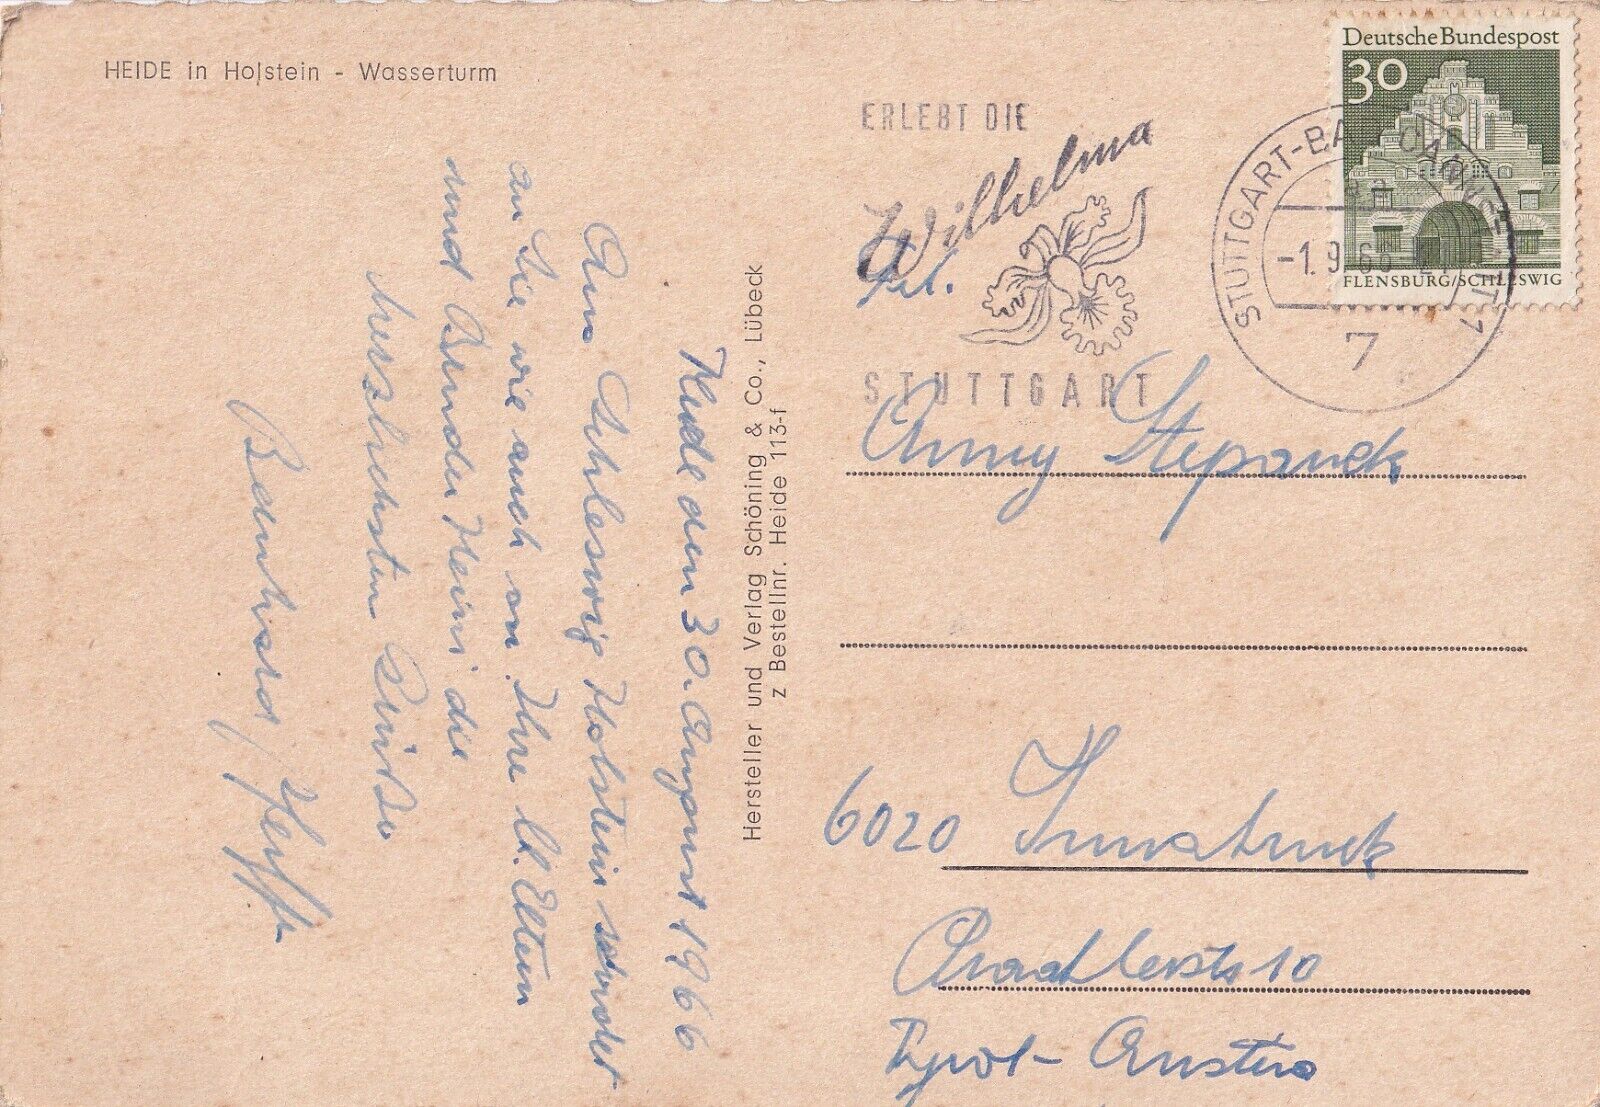 HEIDE in Holstein - Wasserturm
Heide den 30. August 1966
Aus Schleswig Holstein sendet
an Sie wie auch an Ihre lb. Eltern
und Bruder Heini die
herzlichsten Grüße
Bernhard
Hersteller und Verlag Schöning & Co., Lübeck
z Bestellnr. Heide 113-f
ERLEBT DIE
Wilhelma
STUTTGART
Deutsche Bundespost
30
FLENSBURG/SCHLESWIG
STUTTGART-BAD CANNSTATT 1
-1.9.66
7
Frl.
Anny Stepanek
6020 Innsbruck
10
Tyrol - Austria